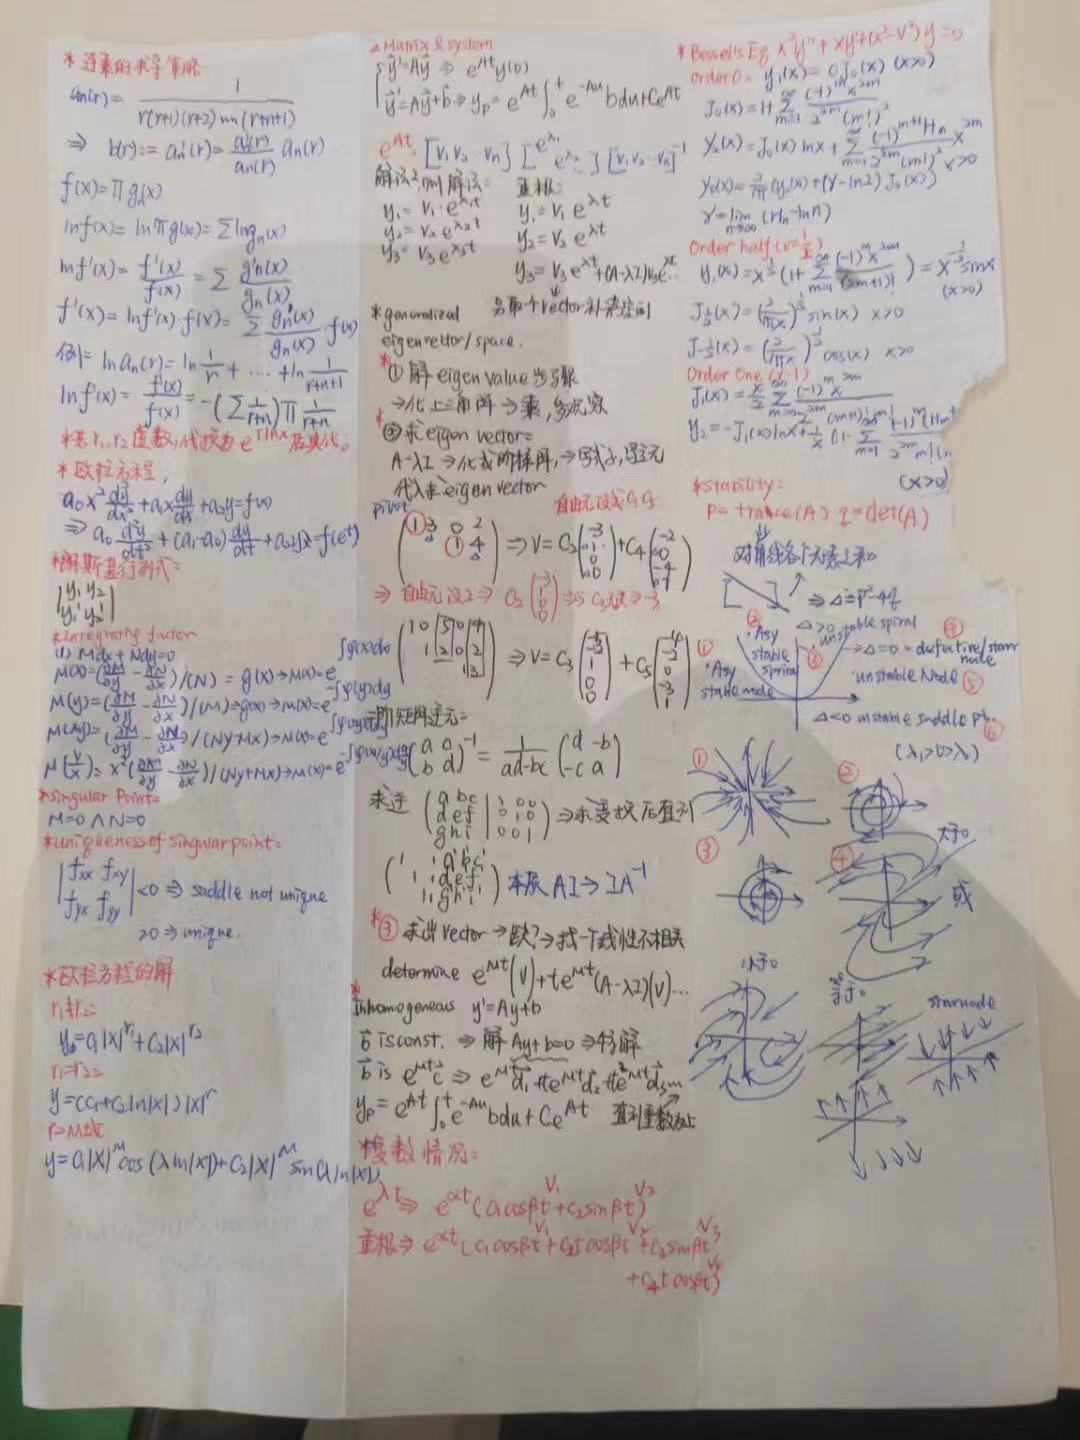 *连乘的求导策略
an(r) = 1 / r(r+1)(r+2)...(r+n+1)
⇒ b(r):= an'(r) = an'(r)/an(r) an(r)
f(x) = Π gn(x)
lnf(x) = lnΠg(x) = Σ lngn(x)
lnf'(x) = f'(x)/f(x) = Σ g'n(x)/gn(x)
f'(x) = lnf'(x)·f(x) = Σ gn'(x)/gn(x) · f(x)
例= ln an(r) = ln 1/r + ... + ln 1/r+n+1
lnf'(x) = f'(x)/f(x) = -(Σ 1/r+n) Π 1/r+n
*若 r1, r2 虚数,代换为 e^rlnx 后实化。
*欧拉方程,
a0x² d²y/dx² + a1x dy/dx + a2y = f(x)
⇒ a0 d²y/dt² + (a1-a0) dy/dt + a2y = f(e^t)
|y1 y2|
|y1' y2'|
*Integrating factor
(1) Mdx + Ndy = 0
M(x) = (∂M/∂y - ∂N/∂x)/(N) = g(x) → M(x) = e^∫g(x)dx
M(y) = (∂M/∂y - ∂N/∂x)/(M) ⇒ g(x) → M(x) = e^-∫g(y)dy
M(xy) = (∂M/∂y - ∂N/∂x)/(Ny-Mx) → M(x) = e
M(y/x) = x²(∂M/∂y - ∂N/∂x)/(Ny+Mx) → M(x) = e
*Singular Point=
M=0 ∧ N=0
*uniqueness of singular point=
|fxx fxy|
|fyx fyy| <0 ⇒ saddle not unique
>0 ⇒ unique.
*欧拉方程的解
r1≠r2=
y = c1|x|^r1 + c2|x|^r2
r1=r2=
y = (c1+c2ln|x|)|x|^r
y = c1|x|^M cos(λln|x|) + c2|x|^M sin(λln|x|)
△Matrix & system
{ y'=Ay ⇒ e^At y(0)
y'=Ay+b ⇒ yp = e^At ∫0^t e^-Au b du + Ce^At
e^At = [V1 V2 ... Vn] [e^λ1 e^λ2 ...] [V1 V2 ... Vn]^-1
重根:
y1 = V1·e^λ1t y1 = V1 e^λt
y2 = V2 e^λ2t y2 = V2 e^λt
y3 = V3 e^λ3t y3 = V3 e^λt + (A-λI)V3 e^λt..
另取个vector补满空间
*generalized
eigenvector/space.
*① 解 eigen value 步骤
→化上三角阵 → 乘,多观察
*② 求 eigen vector=
A-λI → 化成阶梯阵, → 写式子,自由元
代入求 eigen vector
pivot
自由元
(1 3 0 2
1 4) ⇒ V = C2(-3 1 0 0) + C4(-2 0 -4 1)
(1 0 5 0 4
1 2 0 2
1 3) ⇒ V = C3(-5 -2 1 0 0) + C5(-4 -2 0 -3 1)
二阶矩阵逆元=
(a c
b d)^-1 = 1/ad-bc (d -b
-c a)
求逆 (a b c | 1 0 0
d e f | 0 1 0
g h i | 0 0 1) ⇒ 求变换后直到
(1 a' b' c'
1 d' e' f'
1 g' h' i') 本质 AI → IA^-1
*③ 求出 vector → 缺? → 找一个线性不相关
determine e^Mt(V) + te^Mt(A-λI)(V)...
*Inhomogeneous y' = Ay+b
b is const. ⇒ 解 Ay+b=0 ⇒ 特解
b is e^Mt c ⇒ e^Mt d1 + te^Mt d2 + t²e^Mt d3...
yp = e^At ∫0^t e^-Au b du + Ce^At 直到重数为止
*复数情况=
e^λt ⇒ e^αt (c1cosβt V1 + c2sinβt V2)
重根 ⇒ e^αt (c1cosβt V1 + c2tcosβt V2 + c3sinβt V3
+ c4tcosβt V4)
*Bessel's Eq x²y'' + xy' + (x²-V²)y = 0
Order 0 = y1(x) = J0(x) (x>0)
J0(x) = 1+ Σm=1^∞ (-1)^m x^2m / 2^2m (m!)²
y2(x) = J0(x) lnx + Σm=1^∞ (-1)^m+1 Hm / 2^2m (m!)² x^2m x>0
y0(x) = 2/π (y2(x) + (γ-ln2) J0(x))
γ = lim n→∞ (Hn - lnn)
Order half (V=1/2)
y1(x) = x^1/2 (1+ Σm=1^∞ (-1)^m x^2m / (2m+1)!) = x^-1/2 sinx
(x>0)
J1/2(x) = (2/πx)^1/2 sin(x) x>0
J-1/2(x) = (2/πx)^1/2 cos(x) x>0
Order One (V=1)
J1(x) = x/2 Σm=0^∞ (-1)^m x^2m / 2^2m (m+1)! m!
y2 = -J1(x) lnx + 1/x (1- Σm=1^∞ (-1)^m (Hm+ / 2^2m m!(m
(x>0)
*stability=
P = trance(A) q = det(A)
对角线各个元素之和
⇒ Δ=P²-4q
Δ>0
② Asy stable spiral
③
unstable spiral ④
① Asy stable node
→Δ=0 = defective/starr node
unstable Node ⑤
Δ<0 unstable saddle pt. ⑥
(λ1>0>λ2)
① ②
③ ④ 大于0
或
小于0
等于0
starnode